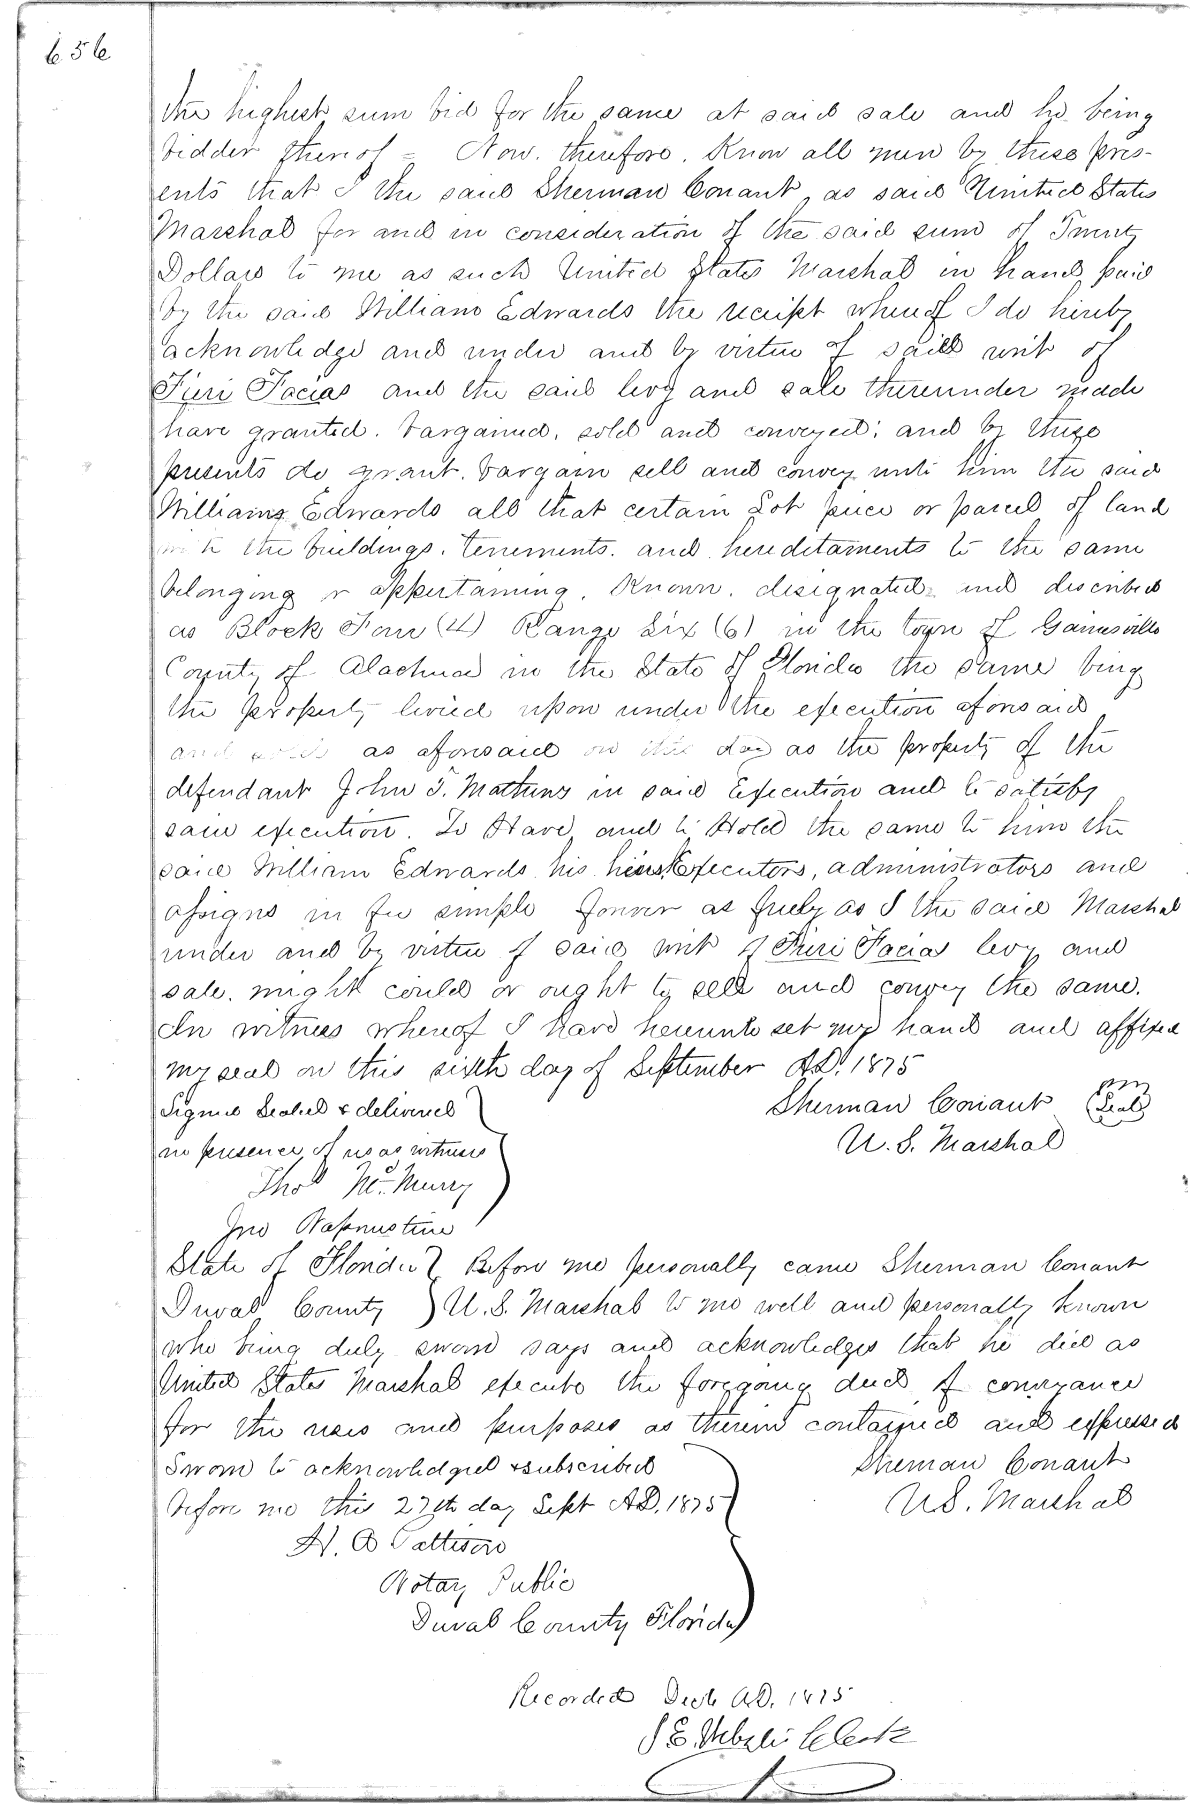 656
the highest sum bid for the same at said sale and he being
bidder thereof = Now. therefore. Know all men by these pres-
ents that I the said Sherman Conant, as said United States
Marshal for and in consideration of the said sum of Twenty
Dollars to me as such United States Marshal in hand paid
by the said William Edwards the receipt whereof I do hereby
acknowledge and under and by virtue of said writ of
Fieri Facias and the said levy and sale thereunder made
have granted. bargained, sold and conveyed; and by these
presents do grant. bargain sell and convey unto him the said
William Edwards all that certain Lot piece or parcel of land
with the buildings. tenements. and hereditaments to the same
belonging or appertaining. Known. designated and described
as Block Four (4) Range Six (6) in the town of Gainesville
County of Alachua in the State of Florida the same being
the property levied upon under the execution aforesaid
and sold as aforesaid on this day as the property of the
defendant John T. Mathews in said Execution and to satisfy
said execution. To Have and to Hold the same to him the
said William Edwards his heirs Executors, administrators and
assigns in fee simple forever as fully as I the said Marshal
under and by virtue of said writ of Fieri Facias levy and
sale. might could or ought to sell and convey the same.
In witness whereof I have hereunto set my hand and affixed
my seal on this sixth day of September A.D. 1875
Signed Sealed & delivered
in presence of us as witness
Sherman Conant (Seal)
U. S. Marshal
Thos McMurry
Jno
State of Florida } Before me personally came Sherman Conant
Duval County } U. S. Marshal to me well and personally known
who being duly sworn says and acknowledges that he did as
United States Marshal execute the foregoing deed of conveyance
for the uses and purposes as therein contained and expressed
Sworn to acknowledged & subscribed
before me this 27th day Sept A.D. 1875
Sherman Conant
U.S. Marshal
Pattison
Notary Public
Duval County Florida
Recorded A.D. 1875
Clerk